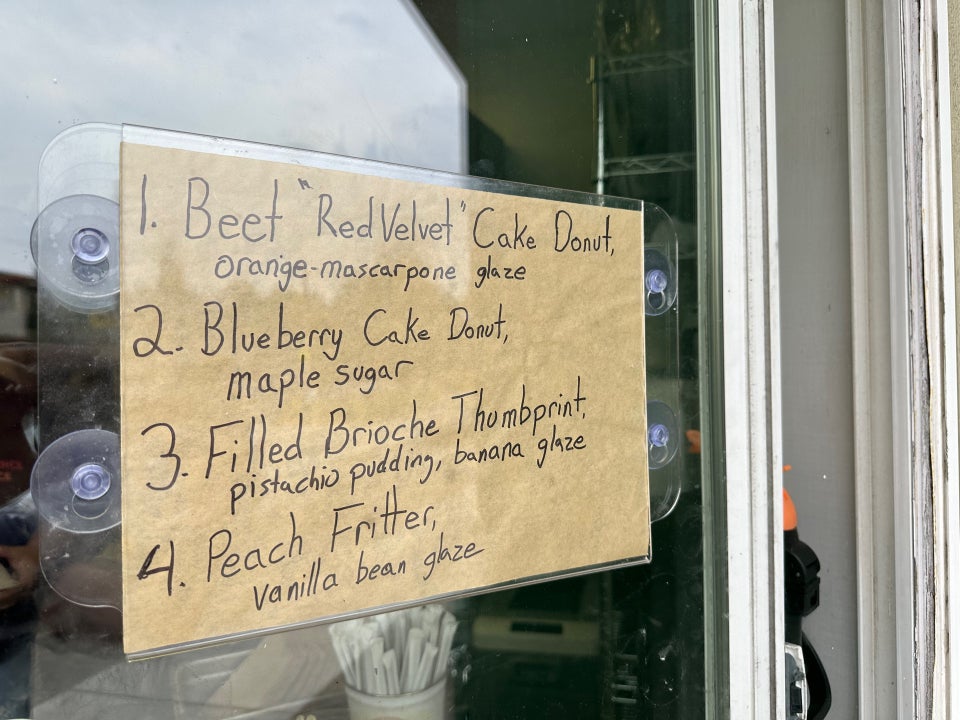 1. Beet "Red Velvet" Cake Donut,
orange-mascarpone glaze
2. Blueberry Cake Donut,
maple sugar
3. Filled Brioche Thumbprint,
pistachio pudding, banana glaze
4. Peach Fritter,
vanilla bean glaze